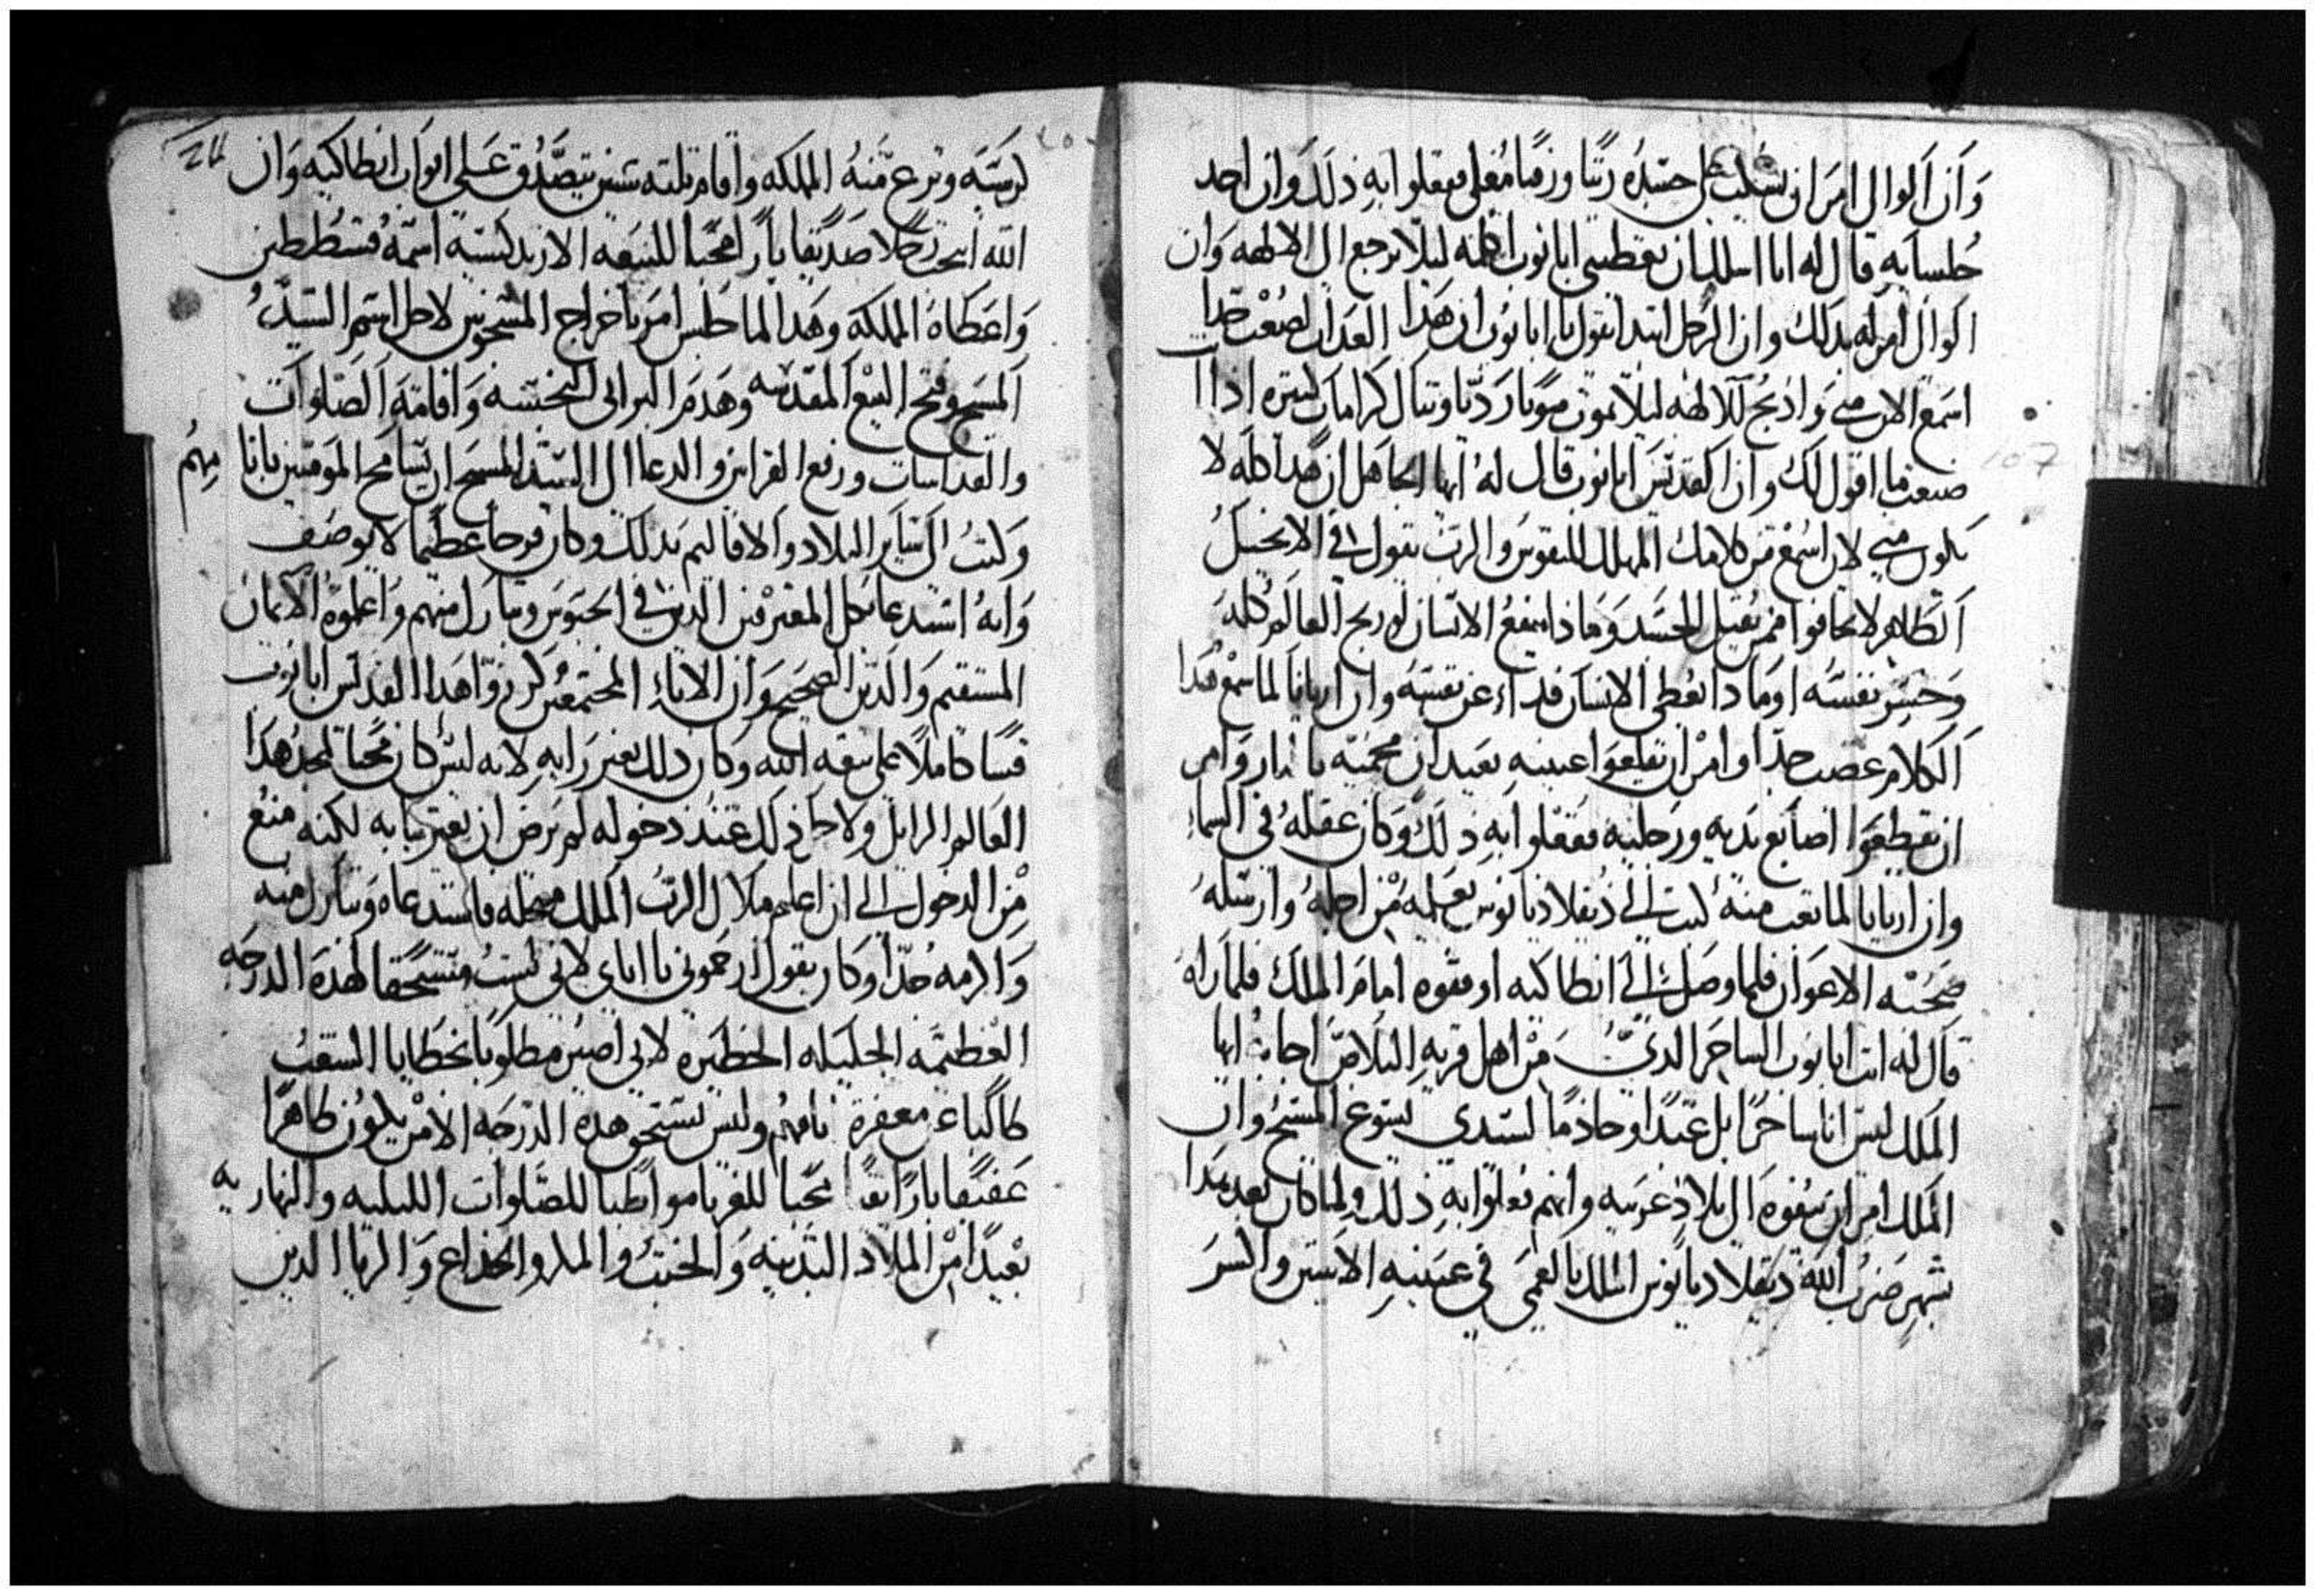 وَأن الوالي امَر ان يسكب على جسَده زيتًا وزفتًا مُغلي ففعلوا به ذلك وان احد
جُلسايه قال له انا اسالك ان تعطيني ابانوب اكلمه ليلا يرجع الى الالهه وَان
الوالي امر له بذلك وان الرجل ابتدا يقول يا ابانوب ان هَدا العداب لصُعب جدا
اسمَع الان مني وَادبح للالهه ليلا تموت موتا رديا وتنال كرامات كتيره ادا
صنعت ما اقول لك وان القديس ابانوب قال لهُ ايها الجاهل ان هدا كله لا
يكون مني لان اسمع من كلامك المهلك للنفوس والرب يقول في الانجيل
الطاهر لا تخافوا ممن يقتل الجسَد وَمَا دا ينفعُ الانسان لو ربح العالم كله
وَخسر نفسَه اومَا دا يعُطي الانسان فداء عن نفسَه وان اريانا لما سمع هدا
الكلام غضب جدا وامر ان يقلعوا عينيه بعيد ان محميه بالنار وَامر
ان يقطعوا اصابع يديه ورجليه ففعلوا به دلك وَكان عقلهُ في السماء
وان اريانا لما تعب منهُ كتب الي دقلاديانوس يعَلمه من اجله وارسله
صحبَته الاعوان فلما وصَل الي انطاكيه اوقفوه امامَ الملك فلما راه
قال له انت ابانوب الساحر الديّ من اهل قريه البلاص اجابهُ ايها
الملك ليسَ انا ساحرًا بل عبدًا وخادمًا لسيدي يسوع المسيح وان
الملك امر ان ينفوه الى بلاد غربيه وانهم فعلوا به دلك ولما كان بعد هدا
بشهر ضرب الله دقلاديانوس الملك بالعمي في عينيه الاتنين وانكسَر
كرسيّه ونزع منهُ المملكه وأقام تلته سنين يتصَّدق عَلى ابواب انطاكيه وَان
الله انتخب رجُلا صَديقا بارًا محبًا للبيَعه الارتدكسيه اسمهُ قسطُنطين
وَاعطاهُ المملكه وهَدا لما جلس امرَ باخراج المسَجونين لاجل اسم السيدُ
المسيح وفتح البيع المقدسَه وهَدمَ البرابي النجسه وَاقامة الصلوات
والقداسات ورفع القرابين والدعا الى السيد المسيح ان يسَامح المومنين بانا منهُم
وَكتبُ الى سَاير البلاد والاقاليم بدلك وكان فرحا عظيما لا يوصَف
وَانهُ استدعا بكل المعترفين الدين في الحبوس وتبارك منهم وَاعلموهُ الامانه
المستقيم وَالدين الصحيح وَان الابآء المجتمعين كرزوا هَدا القديس ابانوب
قسًا كاملًا على بيَعه الله وكان دلك بغير رَايه لانه ليس كان محبًا لمجد هَدا
العالم الزايل ولاجل دلك عند دخوله لم يَرض ان يعترفَا به لكنه منع
من الدخول الي ان اعلم ملاك الربُ الملك محله فاستدعاه وَتبارك منه
وَاكرمه جدًا وكان يقول ارحموني يا اباي لاني لستُ مستحقًا لهده الدرجه
العظيمَه الجليله الخطيره لاني اصير مطلوبًا بخطايا الشعبُ
طالبًا مغفرة اتامهُم وليس يَستحق هده الدرَجه الا من يكون طاهرًا
عَفيفا بارًا تقيًا محبًا للغربا مواظبًا للصَّلوات الليليه والنهاريه
بعيدًا من الملاد البدنيه وَالخبث والمكر والخداع وَالريا الدين